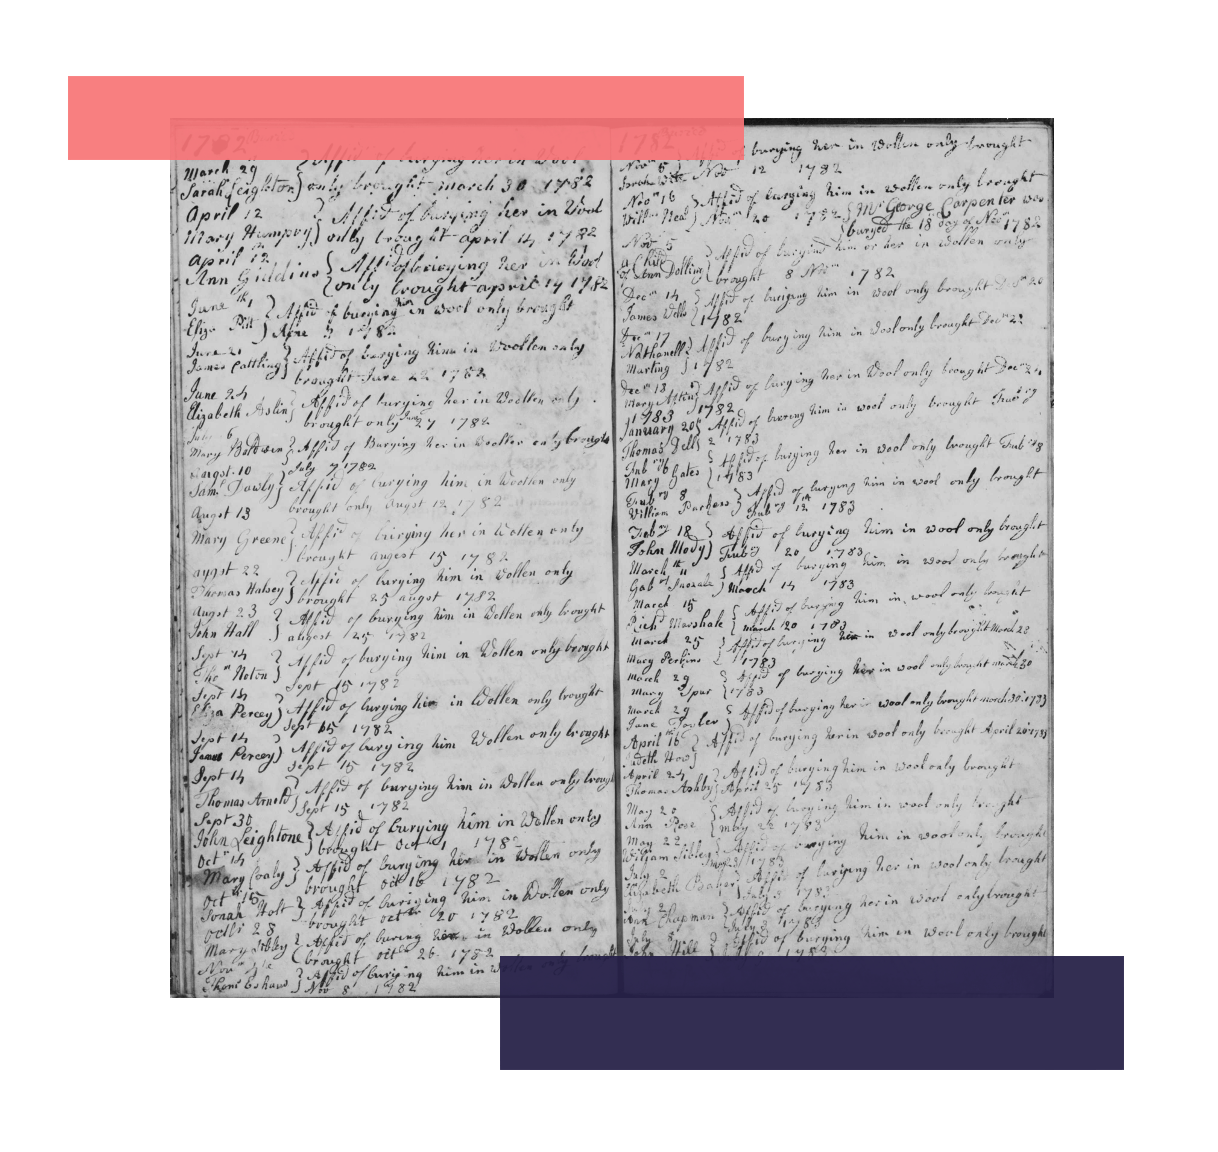 1782
March 29 } Affid of burying her in Wool
Sarah Leighton } only brought March 30 1782
April 12 } Affid of burying her in Wool
Mary Humpry } only brought April 14 1782
April 12 } Affid of burying her in Wool
Ann Giddins { only brought april 14 1782
June th 1 } Affid of burying him in wool only brought
Eliza Pitt 1782
June 21 } Affid of burying him in Woollen only
James Cattling } brought June 22 1782
June 24 } Affid of burying her in Woollen only
Elizabeth Aslin } brought only June 27 1782
July 6
Mary Boldwen } Affid of Burying her in Woollen only brought
Augst. 10 July 7 1782
Saml. Fowly } Affid of burying him in Woollen only
brought only Augst 12 1782
Augst 13
Mary Greene } Affid of burying her in Wollen only
brought augest 15 1782
augst 22 } Affid of burying him in Wollen only
Thomas Halsey } brought 25 augst 1782
August 23 } Affid of burying him in Wollen only brought
John Hall } 25 1782
Sept 14 } Affid of burying him in Wollen only brought
Tho Noton } Sept 15 1782
Sept 14 } Affid of burying her in Wollen only brought
Eliza Percey } Sept 15 1782
Sept 14 } Affid of burying him Wollen only brought
James Percey } Sept 15 1782
Sept 14 } Affid of burying him in Wollen only brought
Thomas Arnold } Sept 15 1782
Sept 30
John Leightone } Affid of burying him in Wollen only
brought Oct 1 1782
Octr 14 } Affid of burying her in Wollen only
Mary Coaly } brought Octr 16 1782
Oct 15 } Affid of burying him in Wollen only
Jonah Holt } brought octr 20 1782
Octr 23 } Affid of buring her in Wollen only
Mary Sibley } brought octr 26 1782
Affid of burying him in Wollen only brought
Nov 8 1782
1782
Novr 5 of burying her in Wollen only brought
Sarah Novr 12 1782
Novr 16 } Affid of burying him in wollen only brought
Willm Neal } Novr 20 1782 { Mr George Carpenter was
{ buryed the 18 day of Novr 1782
Novr 5 } Affid of burying him or her in Wollen only
a Child of Ann Dolling brought 8 Novr 1782
Decr 14 } Affid of burying him in wool only brought Decr 20
James Wells } 1782
Decr 17 } Affid of burying him in Wool only brought Decr 21
Nathanell Marling } 1782
Decr 18 } Affid of burying her in Wool only brought Decr
Mary Atkin } 1782
1783
January 20 } Affid of buering him in wool only brought
Thomas Dell } 1783
Febry 6 } Affid of burying her in wool only brought Febr 8
Mary Gates } 1783
Febry 8 } Affid of burying him in wool only brought
William Puchess } Febry 12 1783
Febry 18 } Affid of burying him in wool only brought
John Mody } Febry 20 1783
March 11 } Affid of burying him in wool only brought
March 14 1783
March 15 } Affid of burying him in wool only brought
Richd Marshale } march 20 1783
March 25 } Affid of burying her in wool only brought March 28
Mary Perkins } 1783
March 29 } Affid of burying her in wool only brought march 30
Mary Spur } 1783
March 29 } Affid of burying her in wool only brought march 30 1783
Jane Fowler
April 16 } Affid of burying her in wool only brought April 20 1783
Judeth How
April 24 } Affid of burying him in wool only brought
Thomas Ashby } April 25 1783
May 20 } Affid of burying her in wool only brought
Ann Rose } May 22 1783
May 22 } Affid of burying him in wool only brought
William Sibley } May 23 1783
July 2 } Affid of burying her in wool only brought
Elizabeth Baker } July 3 1783
July 2 } Affid of burying her in wool only brought
Ann Chapman } July 3 1783
July } Affid of burying him in wool only brought
Hill 1783